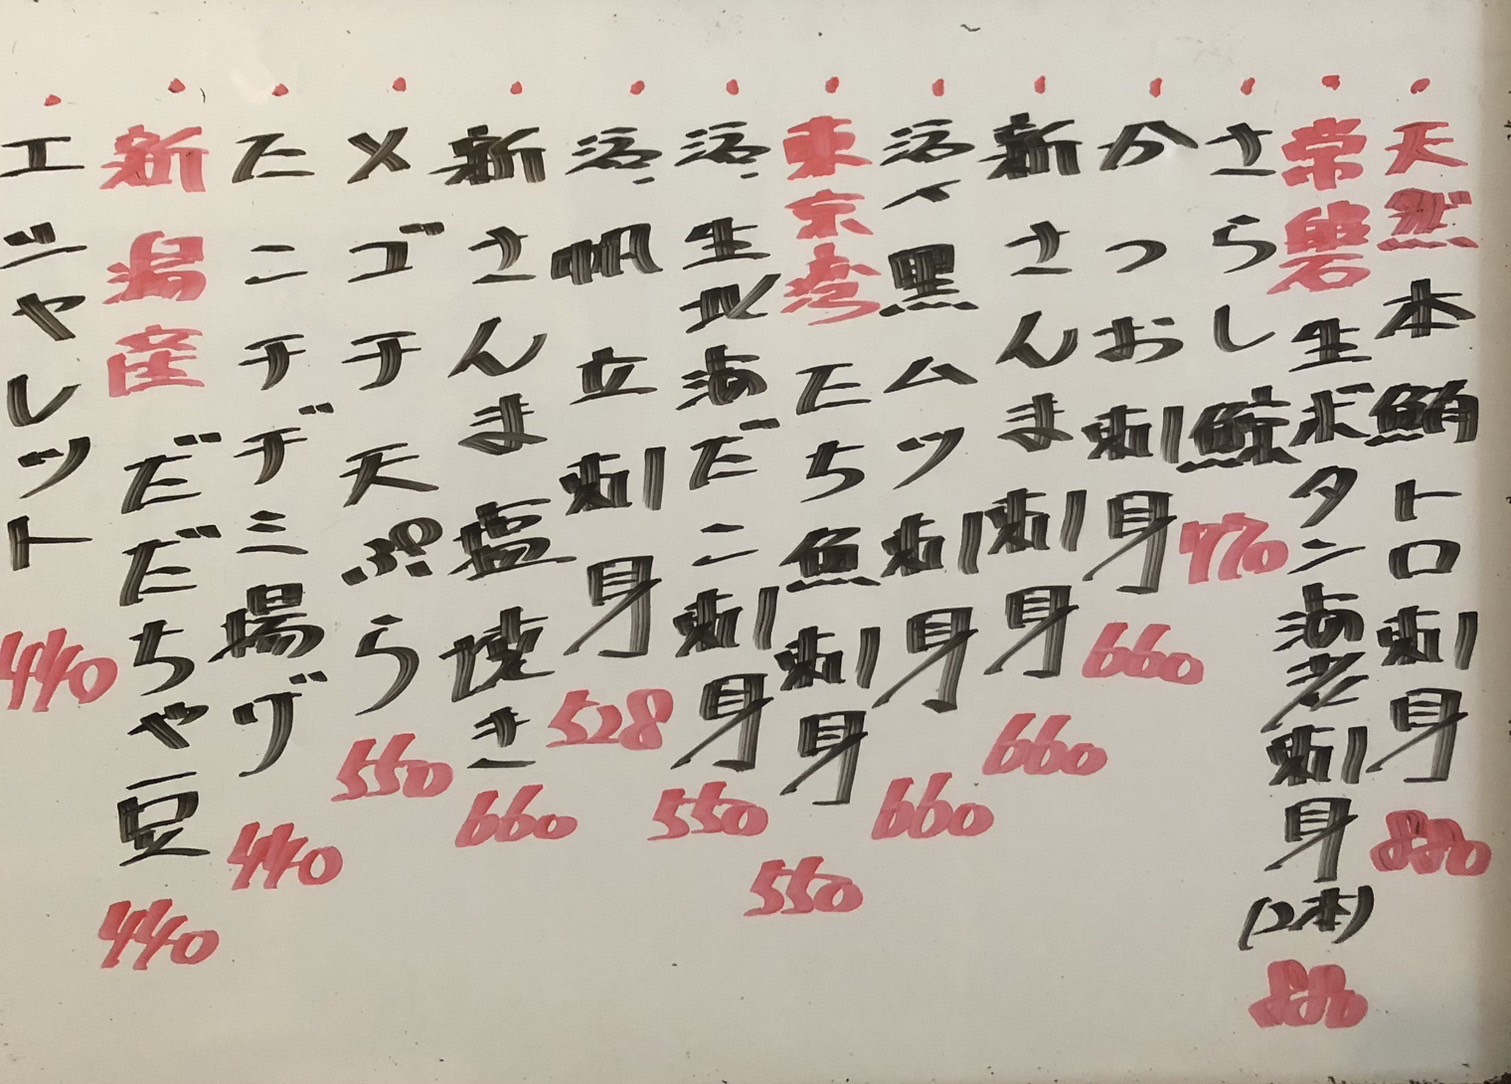 ・天然本鮪トロ刺身 880
・常磐生ボタン海老刺身(2本) 880
・さらし鯨 770
・かつお刺身 660
・新さんま刺身 660
・活〆黒ムツ刺身 660
・東京湾たち魚刺身 550
・活生北海だこ刺身 550
・活帆立刺身 528
・新さんま塩焼き 660
・メゴチ天ぷら 550
・たこチヂミ揚げ 440
・新潟産だだちゃ豆 440
・エシャレット 440